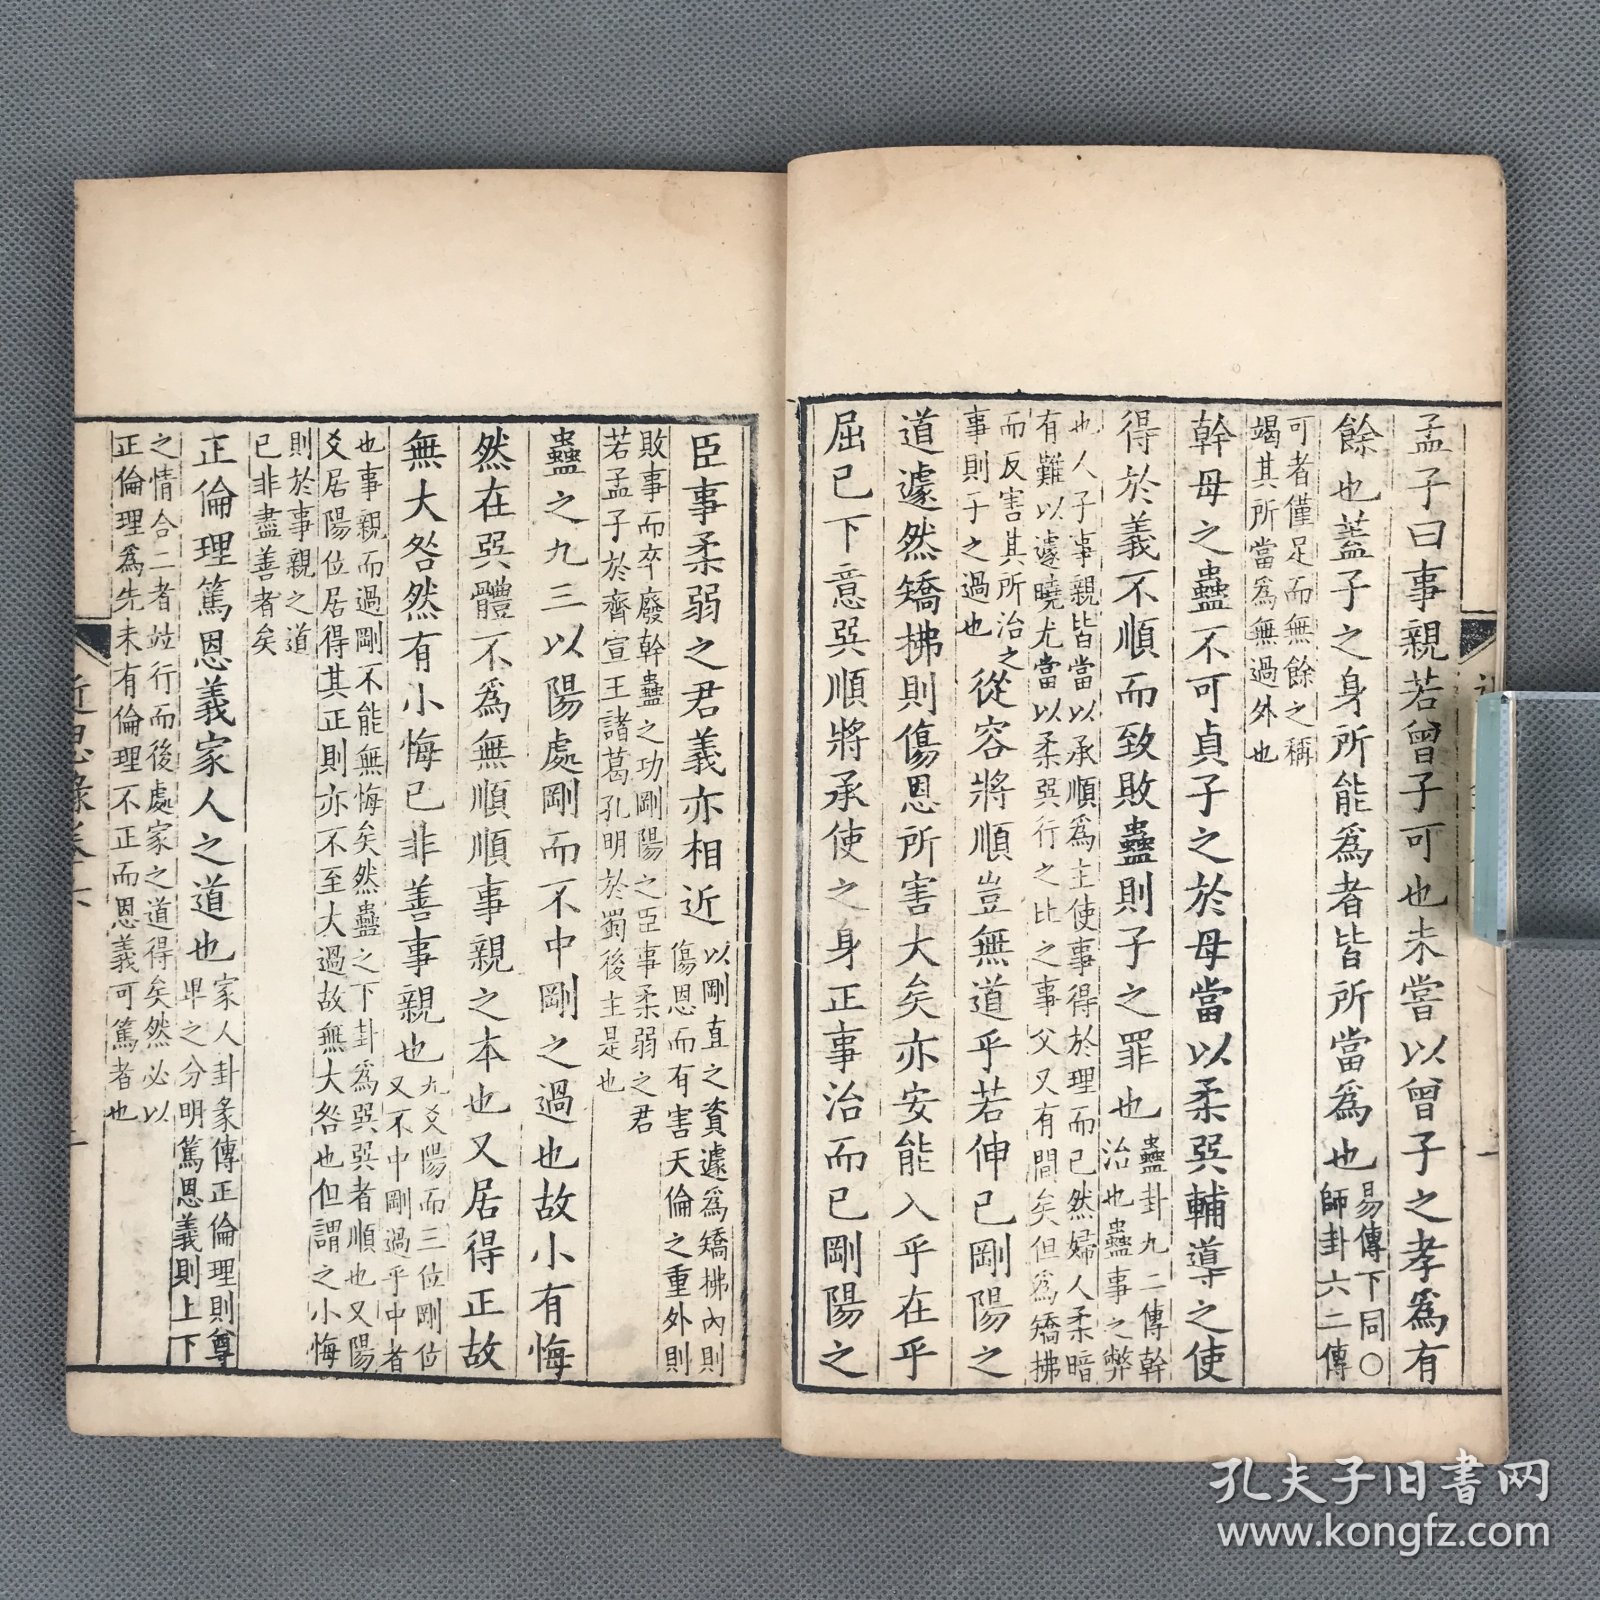 孟子曰事親若曾子可也未嘗以曾子之孝爲有
餘也葢子之身所能爲者皆所當爲也易傳下同○
師卦六二傳
可者僅足而無餘之稱
竭其所當爲無過外也
幹母之蠱不可貞子之於母當以柔巽輔導之使
得於義不順而致敗蠱則子之罪也蠱卦九二傳幹
治也蠱事之弊
也人子事親皆當以承順爲主使事得於理而已然婦人柔暗
有難以遽曉尤當以柔巽行之比之事父又有間矣但爲矯拂
而反害其所治之
事則子之過也從容將順豈無道乎若伸已剛陽之
道遽然矯拂則傷恩所害大矣亦安能入乎在乎
屈已下意巽順將承使之身正事治而已剛陽之
臣事柔弱之君義亦相近以剛直之資遽爲矯拂內則
傷恩而有害天倫之重外則
敗事而卒廢幹蠱之功剛陽之臣事柔弱之君
若孟子於齊宣王諸葛孔明於蜀後主是也
蠱之九三以陽處剛而不中剛之過也故小有悔
然在巽體不爲無順順事親之本也又居得正故
無大咎然有小悔已非善事親也九爻陽而三位剛位
又不中剛過乎中者
也事親而過剛不能無悔矣然蠱之下卦爲巽巽者順也又陽
爻居陽位居得其正則亦不至大過故無大咎也但謂之小悔
則於事親之道
已非盡善者矣
正倫理篤恩義家人之道也家人卦彖傳正倫理則尊
卑之分明篤恩義則上下
之情合二者竝行而後處家之道得矣然必以
正倫理爲先未有倫理不正而恩義可篤者也
近思錄卷六
孔夫子旧书网
www.kongfz.com